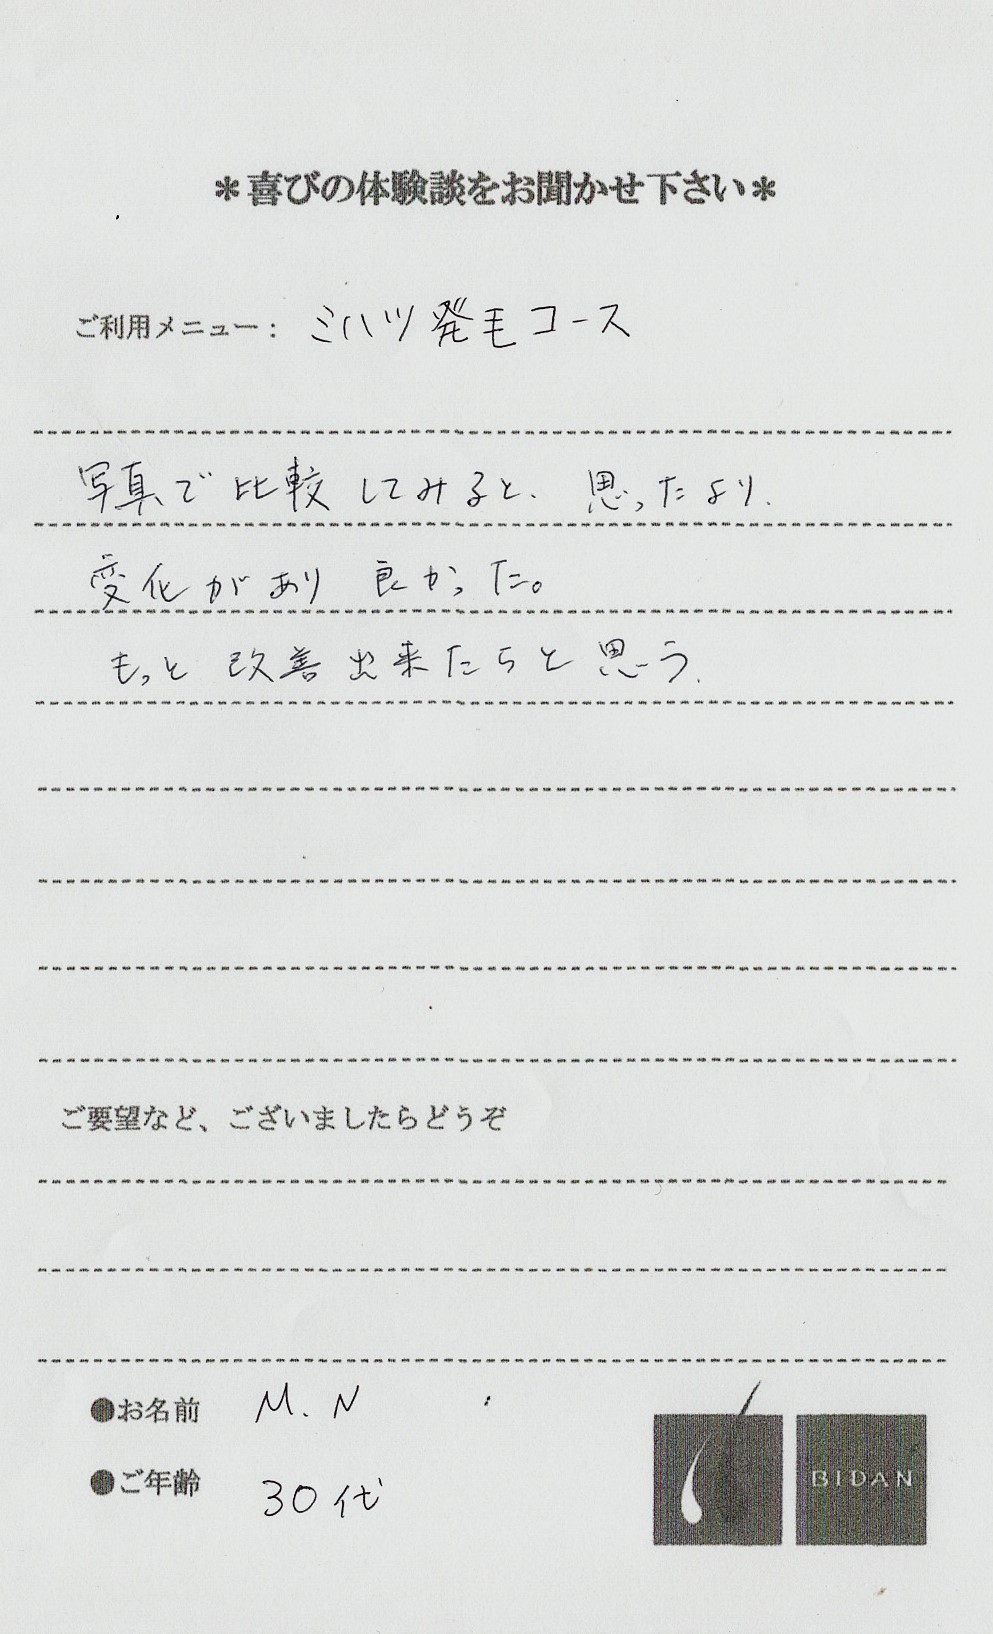 ＊喜びの体験談をお聞かせ下さい＊
ご利用メニュー： ミハツ発毛コース
写真で比較してみると、思ったより、
変化があり 良かった。
もっと改善出来たらと思う。
ご要望など、ございましたらどうぞ
●お名前 M.N
●ご年齢 30代
BIDAN